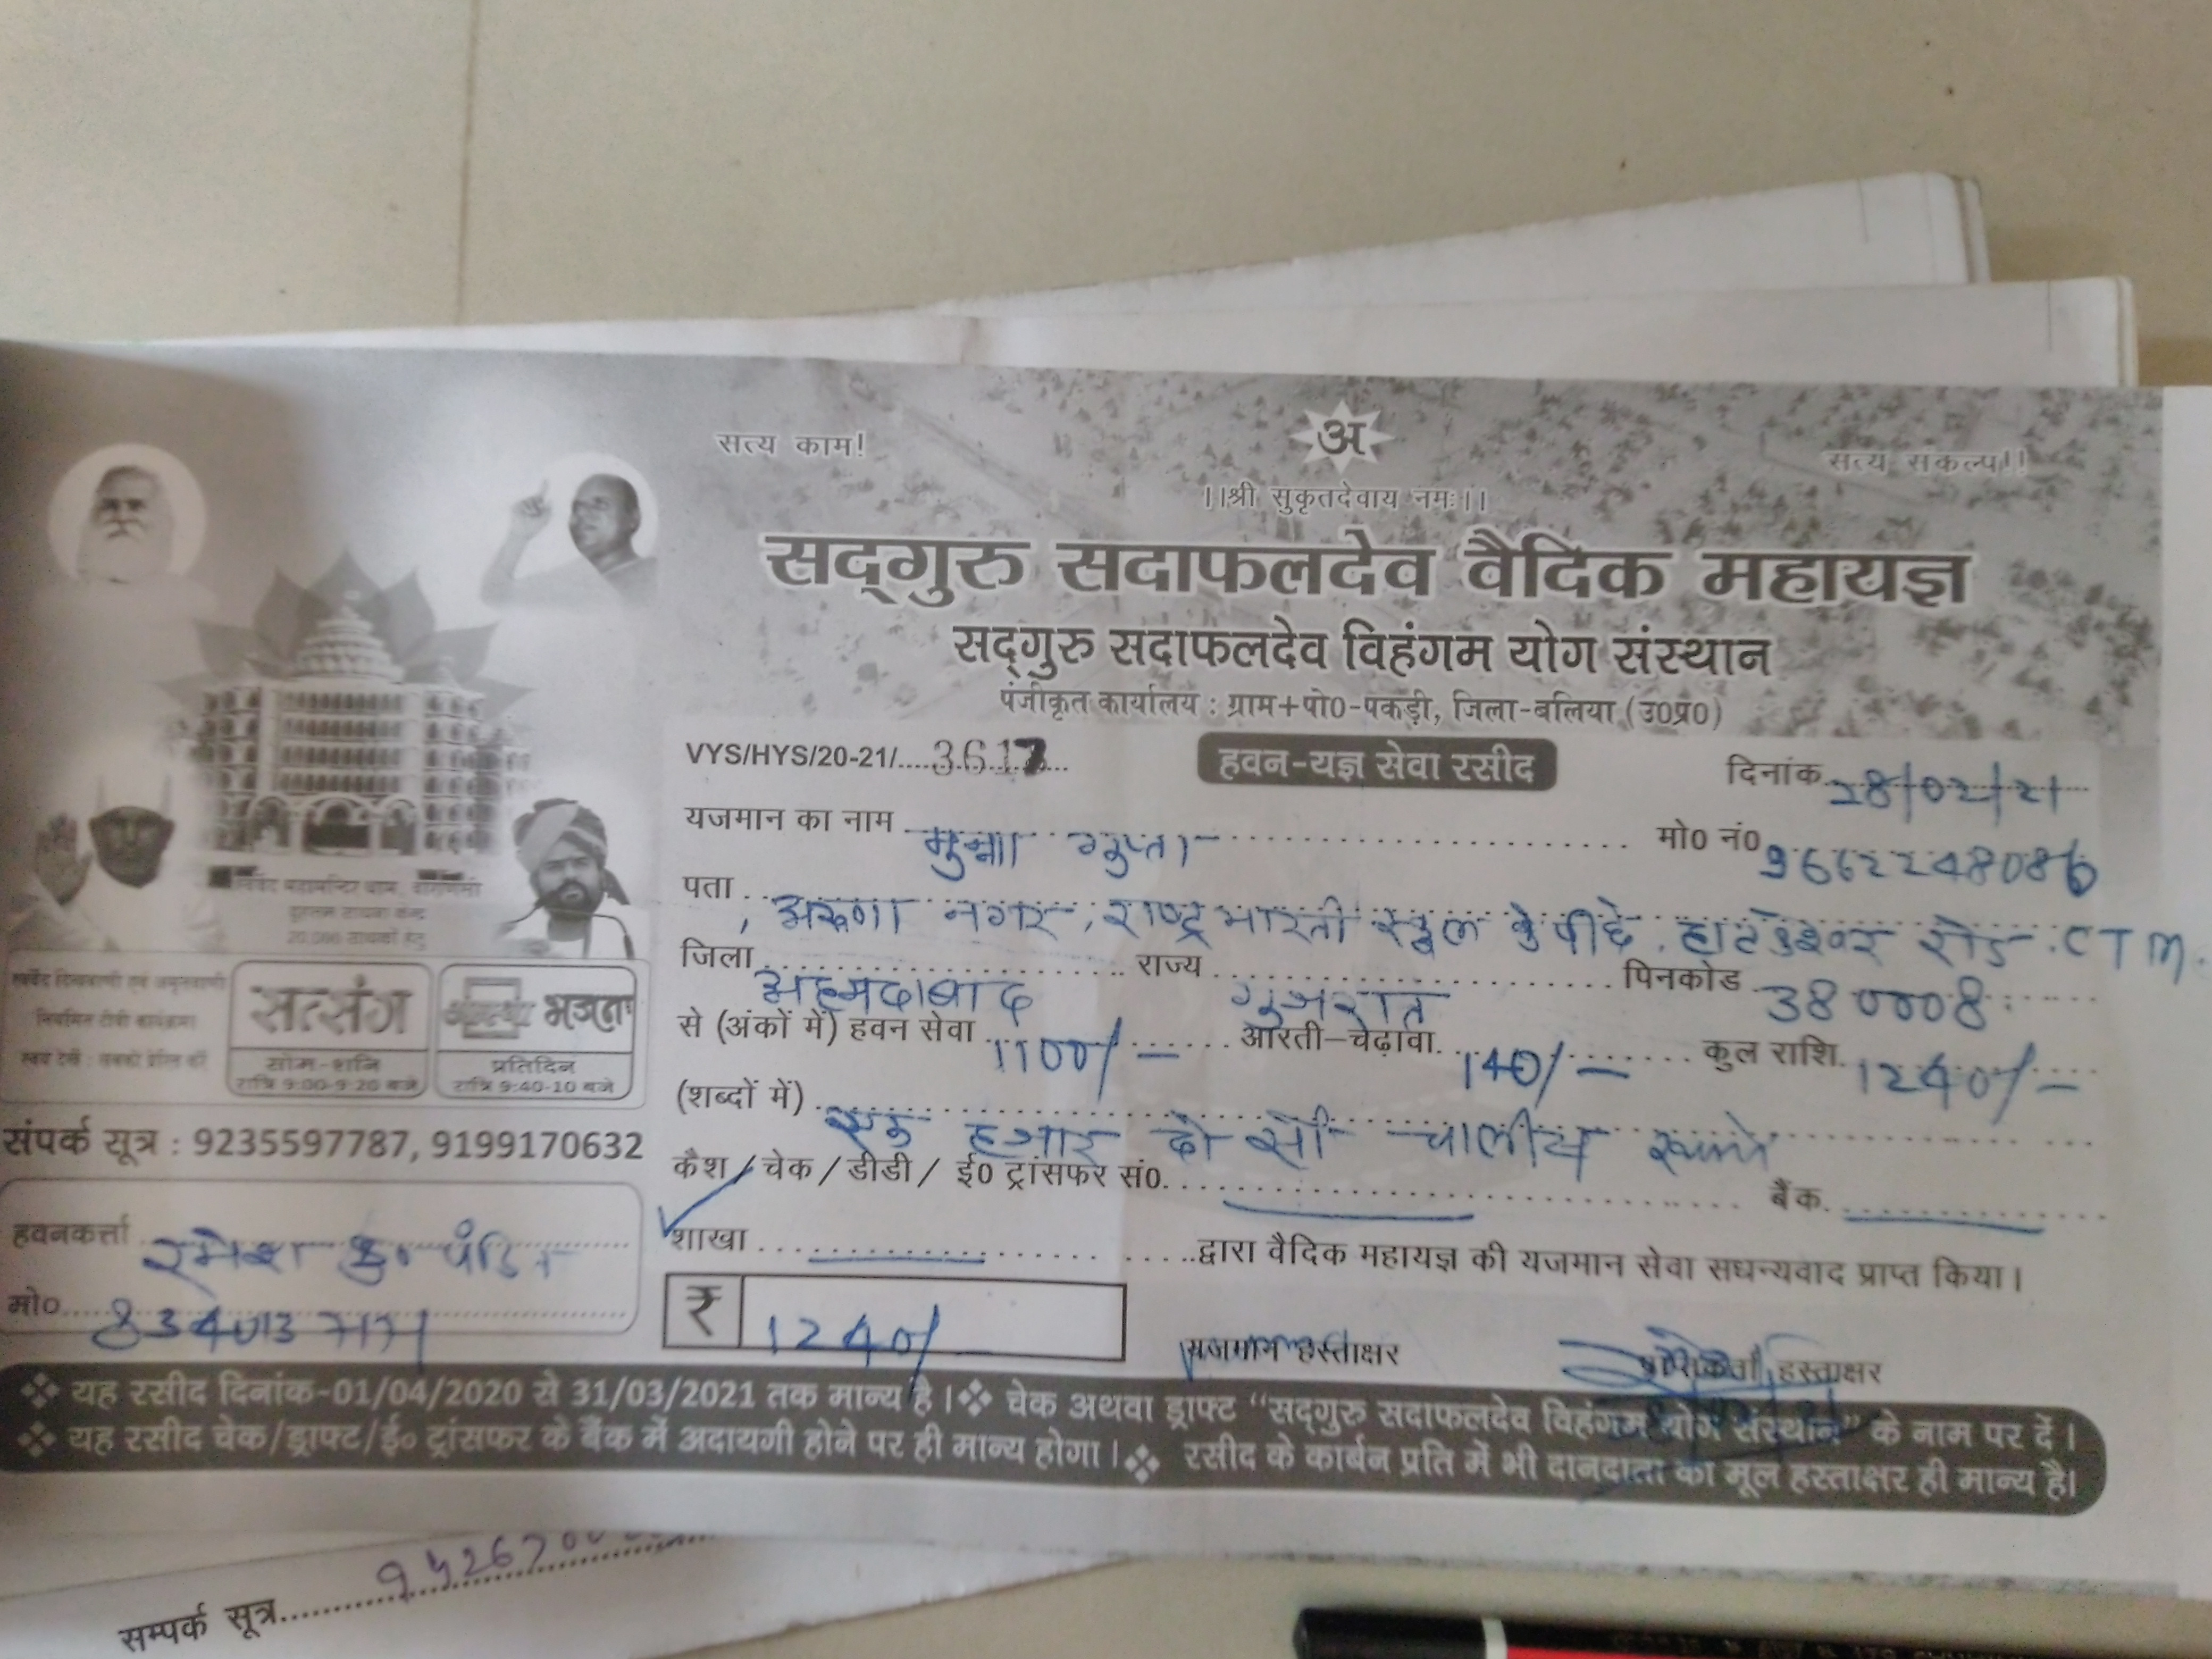 सत्य काम!
अ
सत्य संकल्प!!
।।श्री सुकृतदेवाय नमः।।
सद्‌गुरु सदाफलदेव वैदिक महायज्ञ
सद्‌गुरु सदाफलदेव विहंगम योग संस्थान
पंजीकृत कार्यालय : ग्राम+पो0-पकड़ी, जिला-बलिया (उ0प्र0)
VYS/HYS/20-21/....3617
हवन-यज्ञ सेवा रसीद
दिनांक 28/02/21
यजमान का नाम मुन्ना गुप्ता
मो0 नं0 9662248086
पता अरूणा नगर, राष्ट्र भारती स्कूल के पीछे, हाटकेश्वर रोड. CTM.
जिला अहमदाबाद राज्य गुजरात पिनकोड 380008
से (अंकों में) हवन सेवा 1100/- आरती-चढ़ावा 140/- कुल राशि 1240/-
(शब्दों में) एक हजार दो सौ चालीस रूपये
कैश / चेक / डीडी / ई0 ट्रांसफर सं0 बैंक
शाखा द्वारा वैदिक महायज्ञ की यजमान सेवा सधन्यवाद प्राप्त किया।
₹ 1240/
यजमान हस्ताक्षर
हस्ताक्षर
सत्संग
सोम-शनि
रात्रि 9:00-9:20 बजे
आस्था भजन
प्रतिदिन
रात्रि 9:40-10 बजे
संपर्क सूत्र : 9235597787, 9199170632
हवनकर्त्ता रमेश कु० पंडित
मो०
❖ यह रसीद दिनांक-01/04/2020 से 31/03/2021 तक मान्य है।❖ चेक अथवा ड्राफ्ट “सद्‌गुरु सदाफलदेव विहंगम योग संस्थान” के नाम पर दें।
❖ यह रसीद चेक/ड्राफ्ट/ई० ट्रांसफर के बैंक में अदायगी होने पर ही मान्य होगा।❖ रसीद के कार्बन प्रति में भी दानदाता का मूल हस्ताक्षर ही मान्य है।
सम्पर्क सूत्र